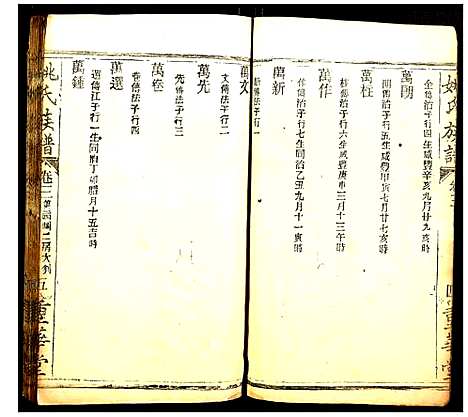 姚氏族譜
卷三
重華堂
全傳治子行四生咸豐辛亥九月廿九亥時
萬朗
明傳治子行五生咸豐甲寅七月廿七亥時
萬枉
枝傳治子行六生咸豐庚申三月十三午時
萬作
新傳治子行七生同治乙丑九月十一寅時
萬新
傳法子行一
萬文
文傳法子行二
萬先
先傳法子行三
萬卷
卷傳法子行四
萬選
選傳江子行一生同治丁卯臘月十五吉時
萬鍾
姚氏族譜
卷三
二房大列
五
重華堂